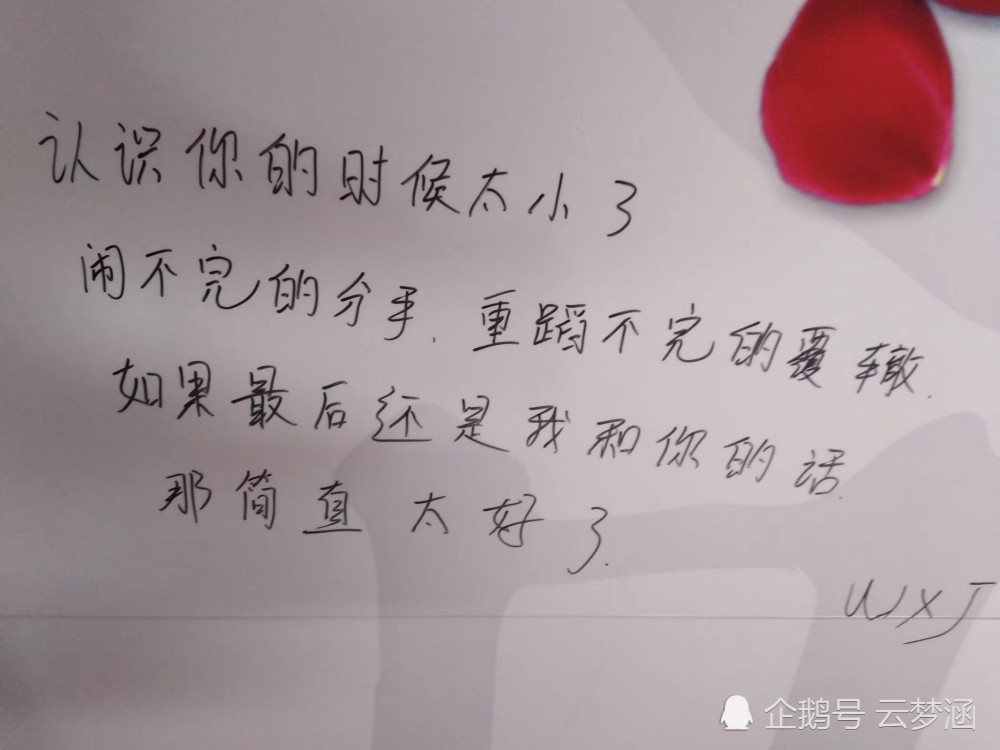 认识你的时候太小了
闹不完的分手.重蹈不完的覆辙.
如果最后还是我和你的话.
那简直太好了.
WXJ
企鹅号 云梦涵